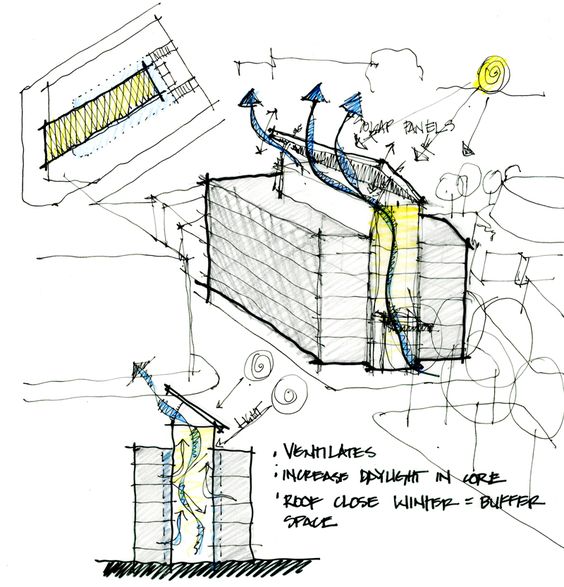 SOLAR PANELS
LIGHT
• VENTILATES
• INCREASE DAYLIGHT IN CORE
• ROOF CLOSE WINTER = BUFFER
SPACE